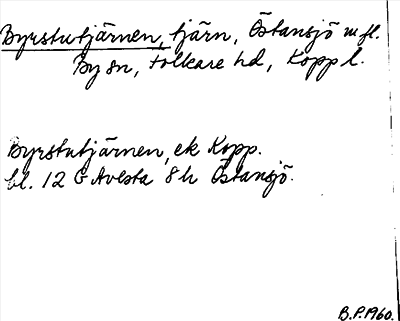 Byrstutjärnen, tjärn, Östansjö m fl.
By sn, Folkare hd, Kopp l.
Byrstutjärnen, ek Kopp.
bl. 12 G Avesta 8 h Östansjö.
B.P. 1960.